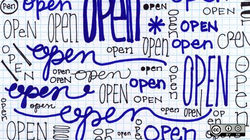 OPEN
open
OPEN
OPEN
open
OPEN
open
open
open
OPEN
open
open
open
OPEN
open
open
open
open
OPEN
open
open
OPEN
open
open
open